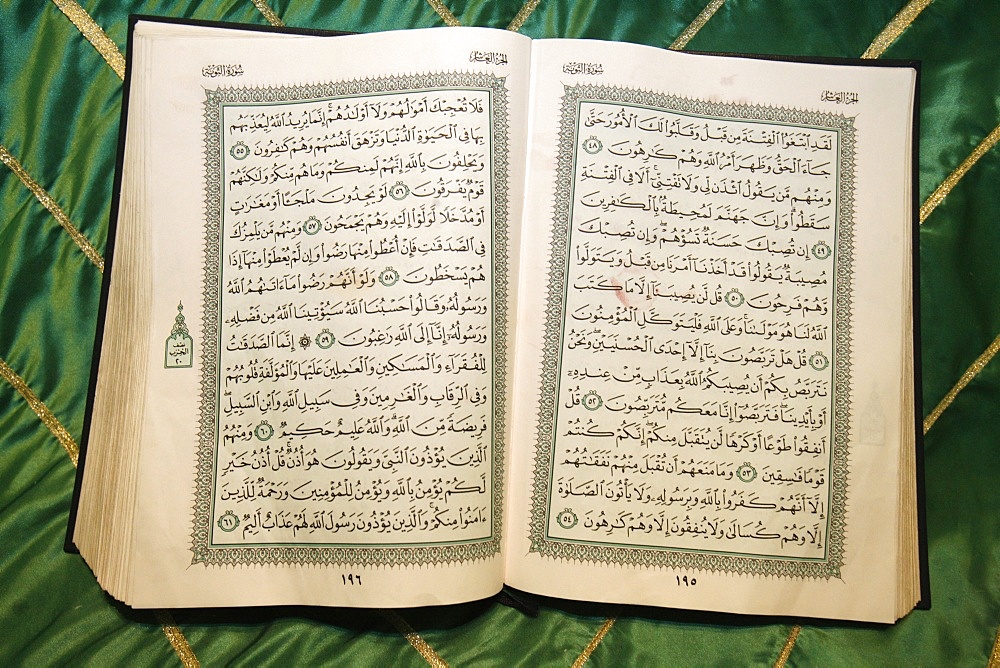 سُورَةُ التَّوْبَةِ
الجُزْءُ العَاشِرُ
لَقَدِ ابْتَغَوُا الْفِتْنَةَ مِن قَبْلُ وَقَلَّبُوا لَكَ الْأُمُورَ حَتَّىٰ
جَاءَ الْحَقُّ وَظَهَرَ أَمْرُ اللَّهِ وَهُمْ كَارِهُونَ ٤٨
وَمِنْهُم مَّن يَقُولُ ائْذَن لِّي وَلَا تَفْتِنِّي أَلَا فِي الْفِتْنَةِ
سَقَطُوا وَإِنَّ جَهَنَّمَ لَمُحِيطَةٌ بِالْكَافِرِينَ
٤٩ إِن تُصِبْكَ حَسَنَةٌ تَسُؤْهُمْ وَإِن تُصِبْكَ
مُصِيبَةٌ يَقُولُوا قَدْ أَخَذْنَا أَمْرَنَا مِن قَبْلُ وَيَتَوَلَّوا
وَّهُمْ فَرِحُونَ ٥٠ قُل لَّن يُصِيبَنَا إِلَّا مَا كَتَبَ
اللَّهُ لَنَا هُوَ مَوْلَانَا وَعَلَى اللَّهِ فَلْيَتَوَكَّلِ الْمُؤْمِنُونَ
٥١ قُلْ هَلْ تَرَبَّصُونَ بِنَا إِلَّا إِحْدَى الْحُسْنَيَيْنِ وَنَحْنُ
نَتَرَبَّصُ بِكُمْ أَن يُصِيبَكُمُ اللَّهُ بِعَذَابٍ مِّنْ عِندِهِ
أَوْ بِأَيْدِينَا فَتَرَبَّصُوا إِنَّا مَعَكُم مُّتَرَبِّصُونَ ٥٢ قُلْ
أَنفِقُوا طَوْعًا أَوْ كَرْهًا لَّن يُتَقَبَّلَ مِنكُمْ إِنَّكُمْ كُنتُمْ
قَوْمًا فَاسِقِينَ ٥٣ وَمَا مَنَعَهُمْ أَن تُقْبَلَ مِنْهُمْ نَفَقَاتُهُمْ
إِلَّا أَنَّهُمْ كَفَرُوا بِاللَّهِ وَبِرَسُولِهِ وَلَا يَأْتُونَ الصَّلَاةَ
إِلَّا وَهُمْ كُسَالَىٰ وَلَا يُنفِقُونَ إِلَّا وَهُمْ كَارِهُونَ ٥٤
١٩٥
سُورَةُ التَّوْبَةِ
الجُزْءُ العَاشِرُ
فَلَا تُعْجِبْكَ أَمْوَالُهُمْ وَلَا أَوْلَادُهُمْ إِنَّمَا يُرِيدُ اللَّهُ لِيُعَذِّبَهُم
بِهَا فِي الْحَيَاةِ الدُّنْيَا وَتَزْهَقَ أَنفُسُهُمْ وَهُمْ كَافِرُونَ ٥٥
وَيَحْلِفُونَ بِاللَّهِ إِنَّهُمْ لَمِنكُمْ وَمَا هُم مِّنكُمْ وَلَٰكِنَّهُمْ
قَوْمٌ يَفْرَقُونَ ٥٦ لَوْ يَجِدُونَ مَلْجَأً أَوْ مَغَارَاتٍ
أَوْ مُدَّخَلًا لَّوَلَّوْا إِلَيْهِ وَهُمْ يَجْمَحُونَ ٥٧ وَمِنْهُم مَّن يَلْمِزُكَ
فِي الصَّدَقَاتِ فَإِنْ أُعْطُوا مِنْهَا رَضُوا وَإِن لَّمْ يُعْطَوْا مِنْهَا إِذَا
هُمْ يَسْخَطُونَ ٥٨ وَلَوْ أَنَّهُمْ رَضُوا مَا آتَاهُمُ اللَّهُ
وَرَسُولُهُ وَقَالُوا حَسْبُنَا اللَّهُ سَيُؤْتِينَا اللَّهُ مِن فَضْلِهِ
وَرَسُولُهُ إِنَّا إِلَى اللَّهِ رَاغِبُونَ ٥٩ ۞ إِنَّمَا الصَّدَقَاتُ
لِلْفُقَرَاءِ وَالْمَسَاكِينِ وَالْعَامِلِينَ عَلَيْهَا وَالْمُؤَلَّفَةِ قُلُوبُهُمْ
وَفِي الرِّقَابِ وَالْغَارِمِينَ وَفِي سَبِيلِ اللَّهِ وَابْنِ السَّبِيلِ
فَرِيضَةً مِّنَ اللَّهِ وَاللَّهُ عَلِيمٌ حَكِيمٌ ٦٠ وَمِنْهُمُ
الَّذِينَ يُؤْذُونَ النَّبِيَّ وَيَقُولُونَ هُوَ أُذُنٌ قُلْ أُذُنُ خَيْرٍ
لَّكُمْ يُؤْمِنُ بِاللَّهِ وَيُؤْمِنُ لِلْمُؤْمِنِينَ وَرَحْمَةٌ لِّلَّذِينَ
آمَنُوا مِنكُمْ وَالَّذِينَ يُؤْذُونَ رَسُولَ اللَّهِ لَهُمْ عَذَابٌ أَلِيمٌ ٦١
نصف
الحزب
٢٠
١٩٦